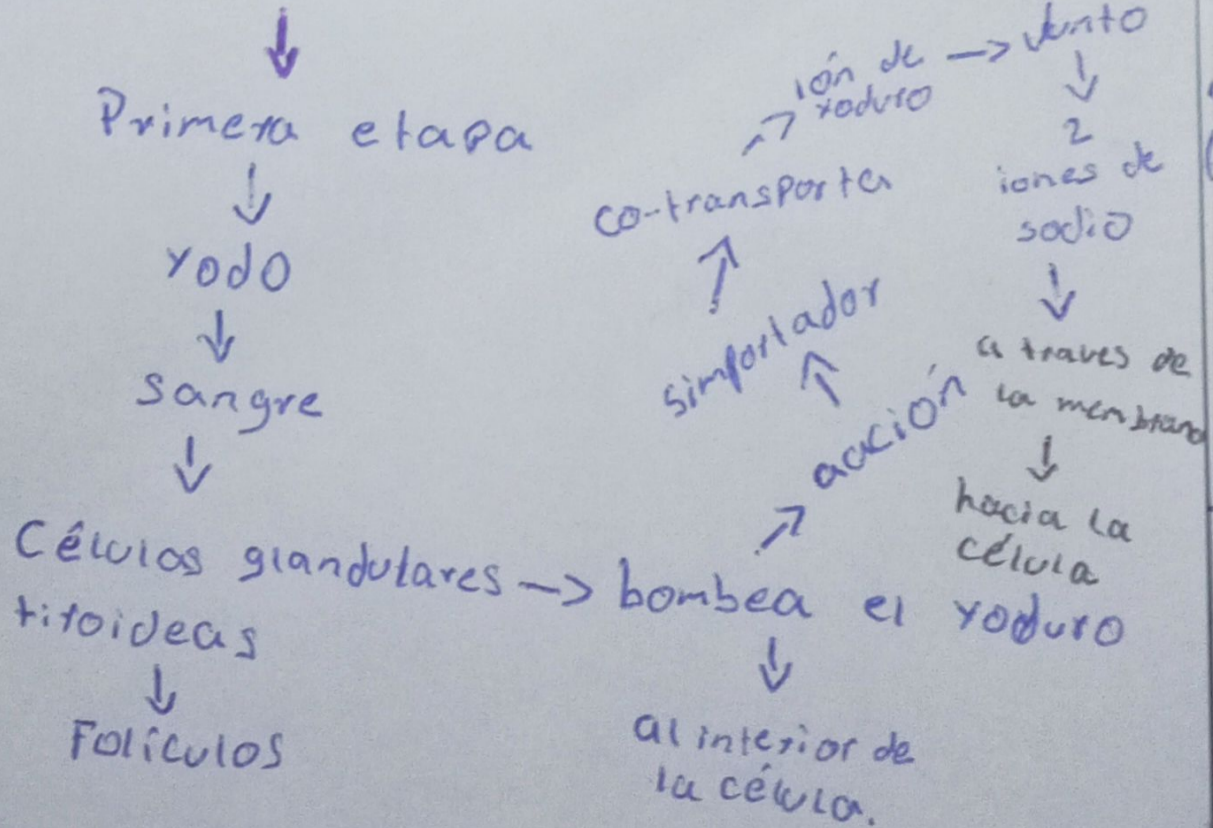 Primera etapa
yodo
sangre
Células glandulares
tiroideas
Folículos
bombea el yoduro
al interior de
la célula.
acción
simportador
co-transporta
ión de
yoduro
Junto
2
iones de
sodio
a traves de
la membrana
hacia la
célula